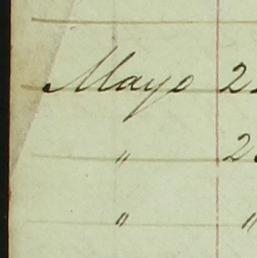 Mayo 2
" 2
" "